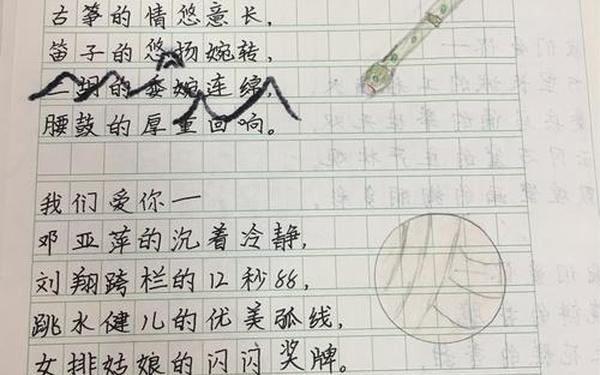 古筝的情悠意长，
笛子的悠扬婉转，
二胡的委婉连绵，
腰鼓的厚重回响。
我们爱你一
邓亚萍的沉着冷静，
刘翔跨栏的12秒88，
跳水健儿的优美弧线，
女排姑娘的闪闪奖牌。